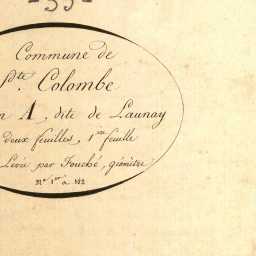 Commune de
Ste. Colombe
n A, dite de Launay
deux feuilles, 1re feuille
Levée par Fouché, géomètre
Nos 1er à